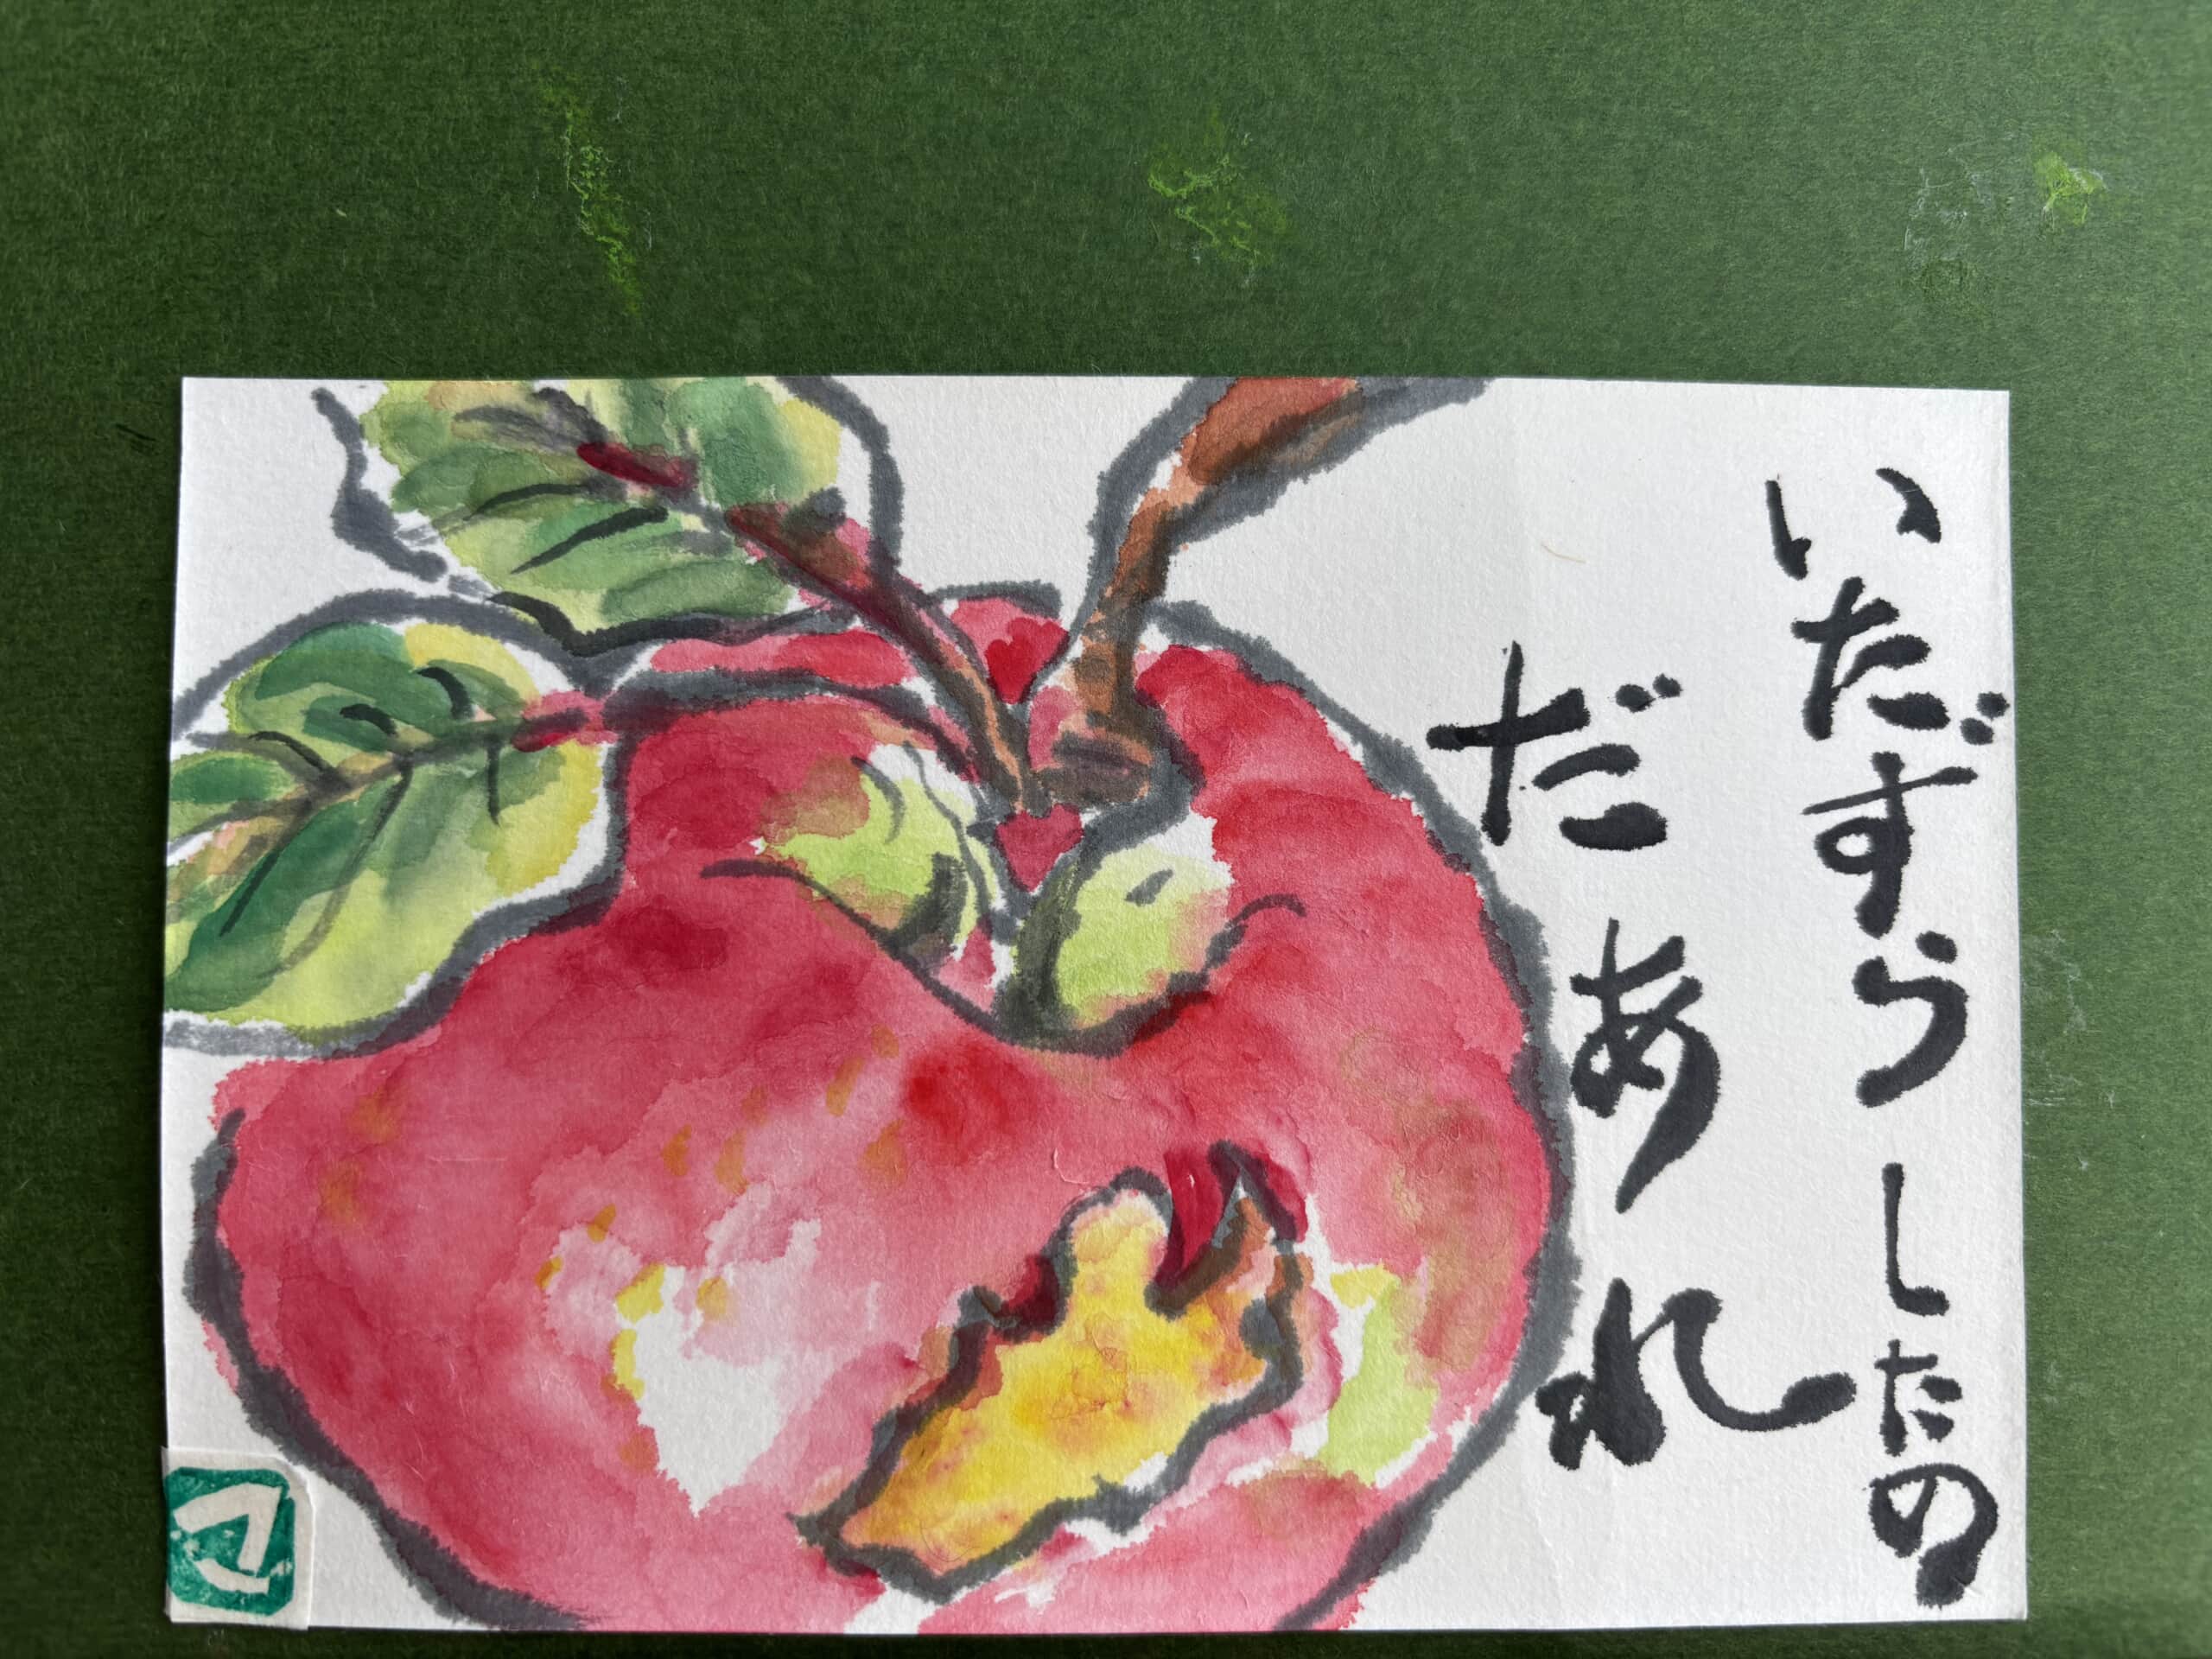 いだずらしたの
だあれ